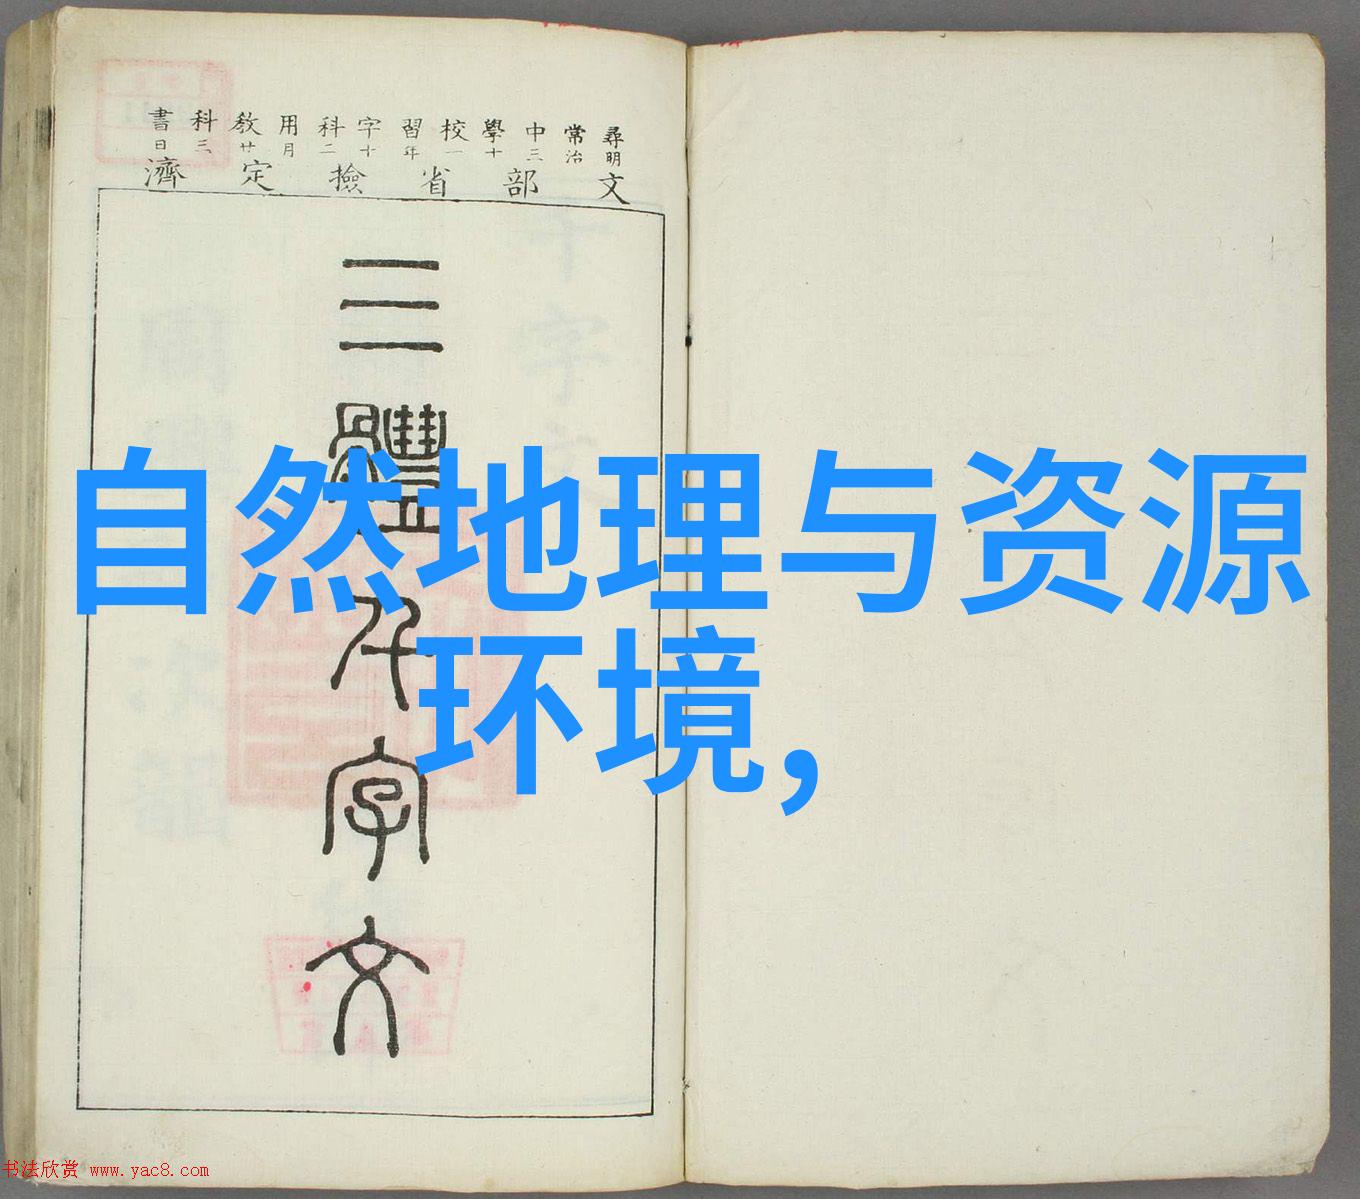 尋常中學校習字科用教科書
明治三十一年十二月廿三日
文部省撿定濟
三體千字文
自然地理与资源
环境,
书法欣赏 www.yac8.com